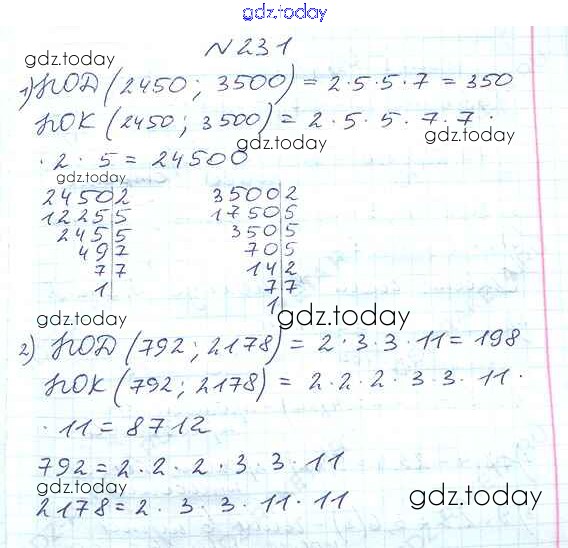 gdz.today
N 231
gdz.today
1) НОД (2450; 3500) = 2·5·5·7 = 350
НОК (2450; 3500) = 2·5·5·7·7·
gdz.today
·2·5 = 24500
gdz.today
2450|2 3500|2
1225|5 1750|5
245|5 350|5
49|7 70|5
7|7 14|2
1| 7|7
1|
gdz.today gdz.today
2) НОД (792; 2178) = 2·3·3·11 = 198
gdz.today
НОК (792; 2178) = 2·2·2·3·3·11·
·11 = 8712
792 = 2·2·2·3·3·11
gdz.today gdz.today
2178 = 2·3·3·11·11